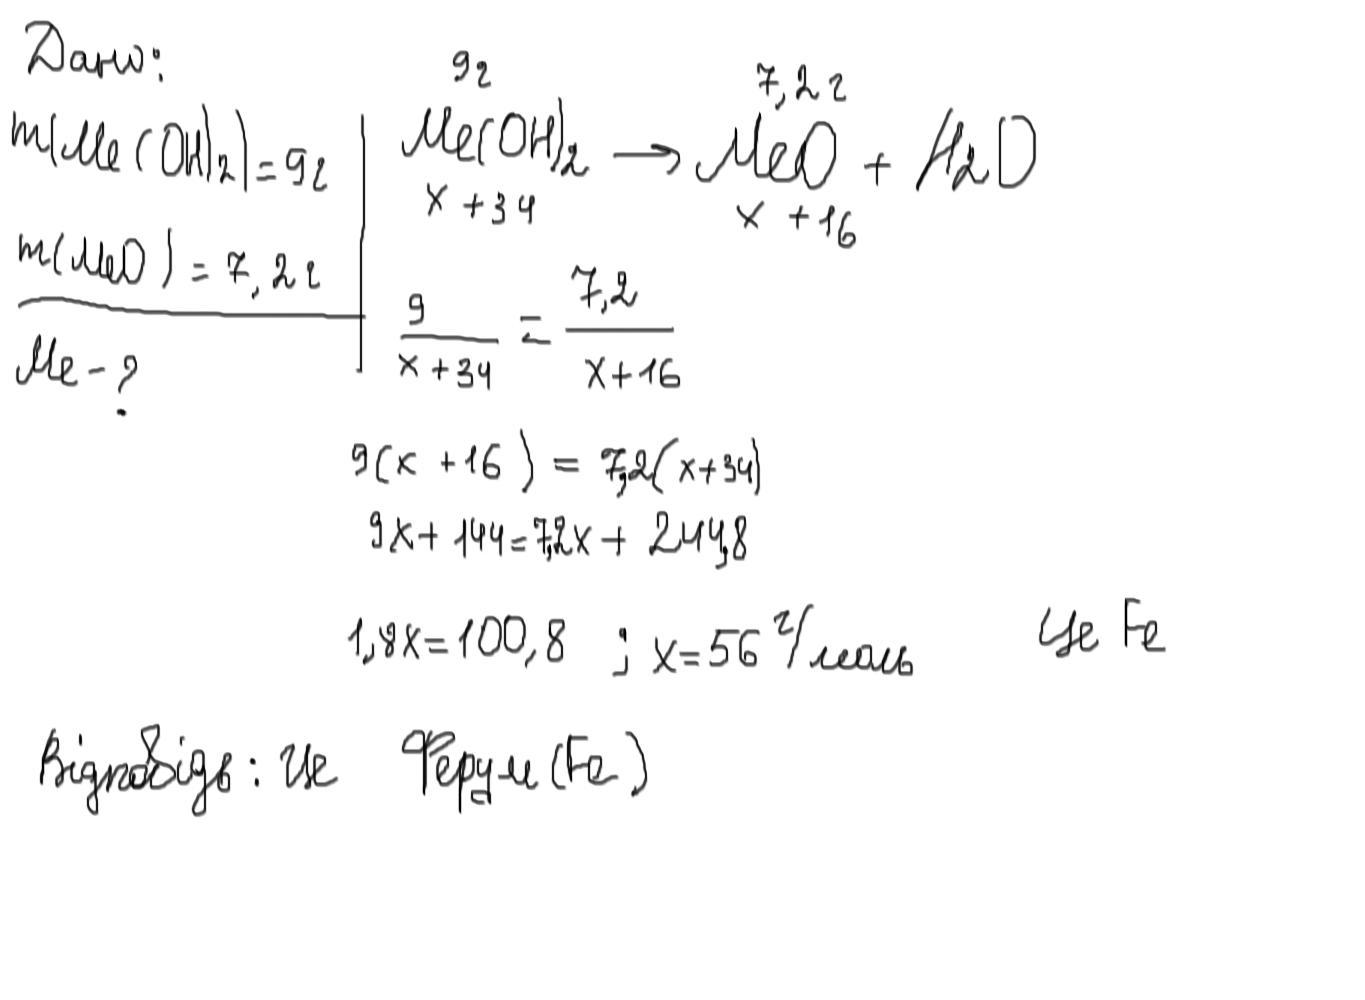 Дано:
m(Me(OH)2)=9г
m(MeO)=7,2г
Me-?
9г 7,2г
Me(OH)2 → MeO + H2O
x+34 x+16
9/x+34 = 7,2/x+16
9(x+16)=7,2(x+34)
9x+144=7,2x+244,8
1,8x=100,8 ; x=56 г/моль Це Fe
Відповідь: Це Ферум (Fe)